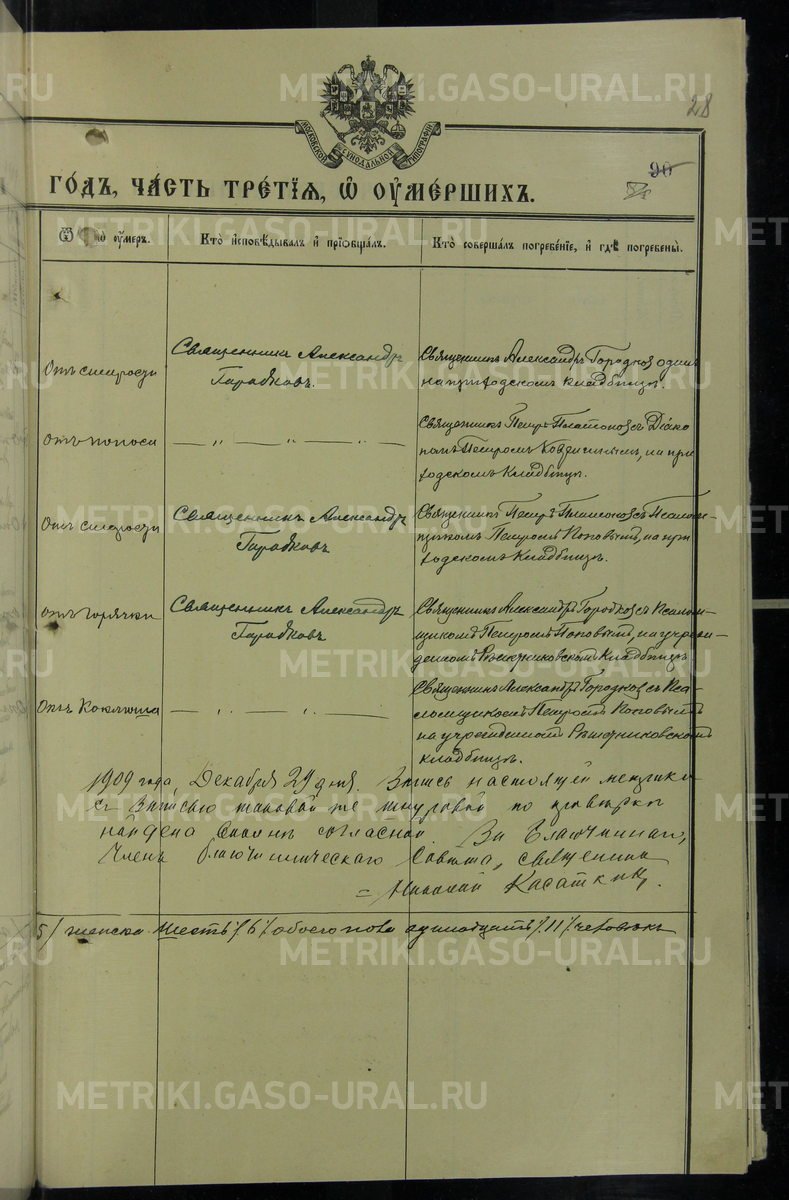 METRIKI.GASO-URAL.RU
28
МОСКОВСКОЙ СѴНОДАЛЬНОЙ ТИПОГРАФІИ
20
ГОДЪ, ЧАСТЬ ТРЕТІЯ, Ѿ ОУМЕРШИХЪ.
оумеръ.
Кто исповѣдывалъ и пріобщалъ.
Кто совершалъ погребеніе, и гдѣ погребены.
Отъ старости
Священникъ Александръ
Городковъ.
Священникъ Александръ Городков один
на приходскомъ кладбищѣ.
отъ поноса
— „ — „ — „ —
Священникъ Петръ Платоновъ съ Діако
номъ Петромъ на при
ходскомъ Кладбищѣ.
Отъ старости
Священникъ Александръ
Городковъ
Священникъ Петръ Платоновъ съ Псалом-
щикомъ Петромъ Поповымъ, на при
ходскомъ Кладбищѣ.
отъ горячки
Священникъ Александръ
Городковъ
Священникъ Александръ Городков съ Псалом-
щикомъ Петромъ Поповымъ, на
Кладбищѣ
Отъ Коклюша
— „ — „ —
Священникъ Александръ Городков съ Пса-
ломщикомъ Петромъ Поповымъ
на
кладбищѣ.
1909 года, Декабря 29 дня. Запись настоящей метрики
съ записью таковой же шнуровой по провѣркѣ
найдена вполнѣ согласной За Благочиннаго,
Членъ благочинническаго Совѣта, священникъ
= Николай Касаткинъ.
5/ женска шесть /6/ обоего пола одинадцать /11/ человѣкъ